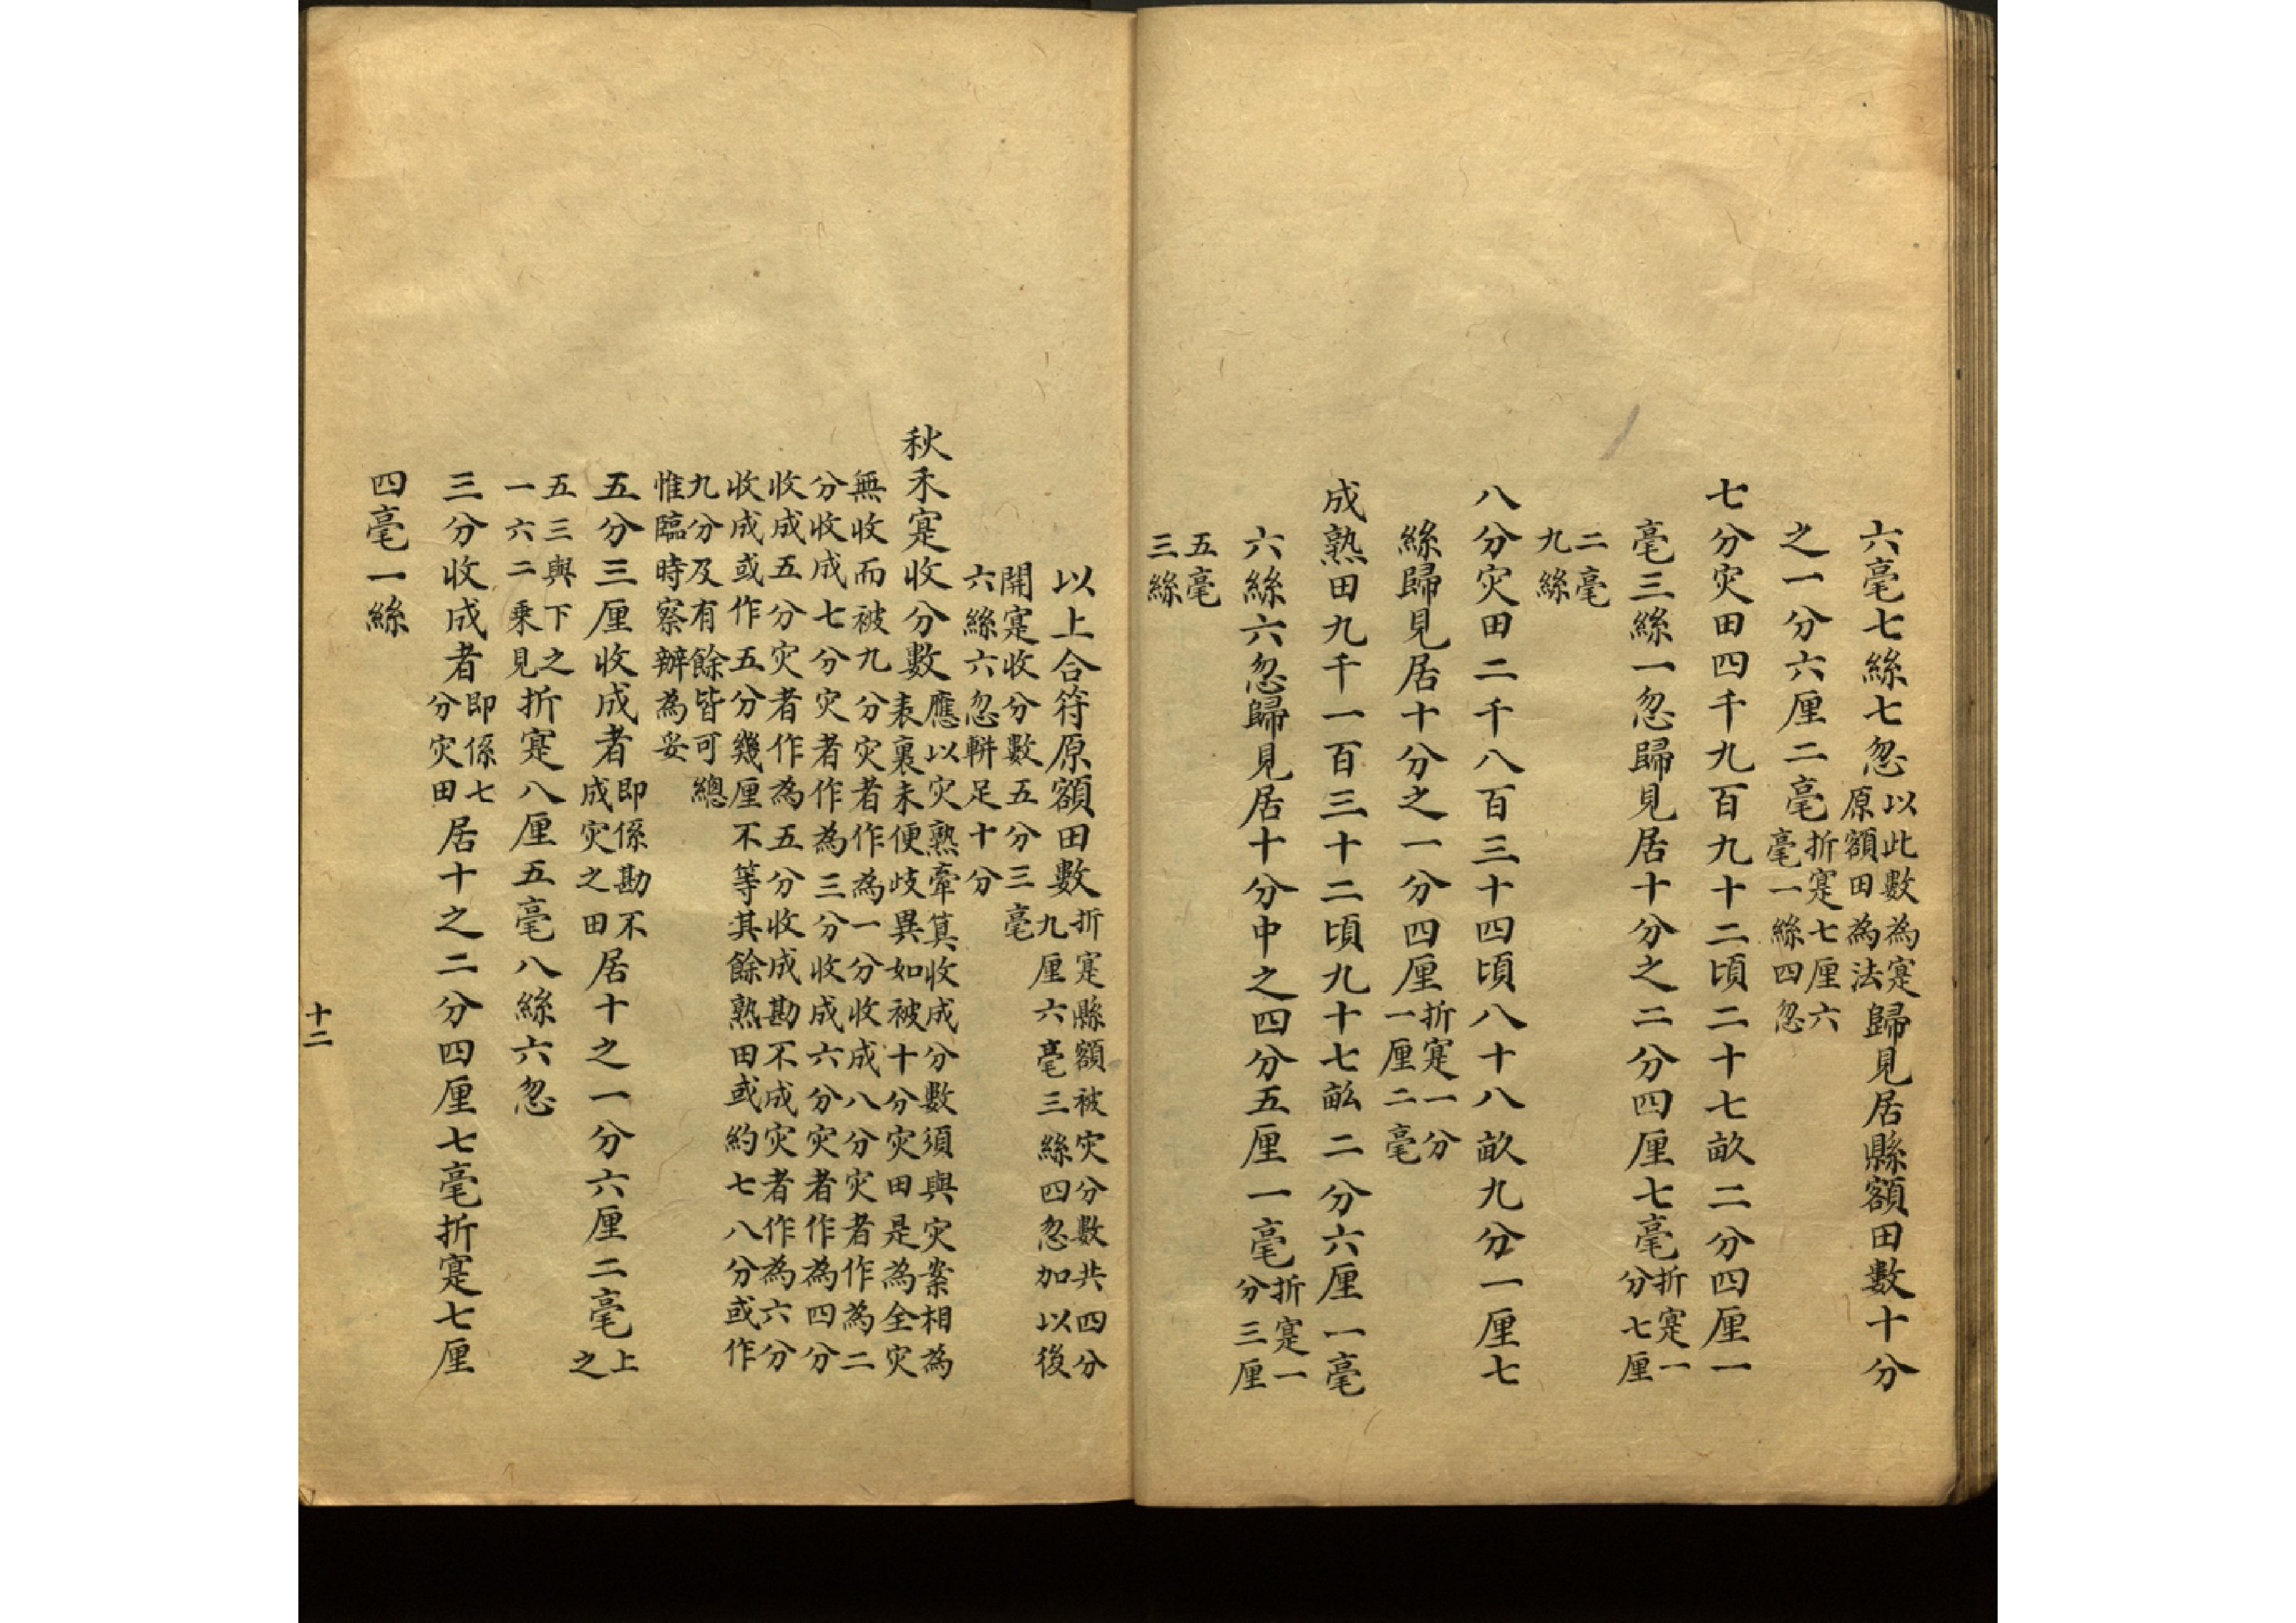 六毫七絲七忽以此數為寔原額田為法歸見居縣額田數十分
之一分六厘二毫折寔七厘六毫一絲四忽
七分灾田四千九百九十二頃二十七畝二分四厘一
毫三絲一忽歸見居十分之二分四厘七毫折寔一分七厘
二毫九絲
八分灾田二千八百三十四頃八十八畝九分一厘七
絲歸見居十分之一分四厘折寔一分一厘二毫
成熟田九千一百三十二頃九十七畝二分六厘一毫
六絲六忽歸見居十分中之四分五厘一毫折寔一分三厘
五毫三絲
以上合符原額田數折寔縣額被灾分數共四分九厘六毫三絲四忽加以後
開寔收分數五分三毫六絲六忽輧足十分
秋禾寔收分數應以灾熟牽算收成分數須與灾案相為表裏未便歧異如被十分灾田是為全灾
無收而被九分灾者作為一分收成八分灾者作為二
分收成七分灾者作為三分收成六分灾者作為四分
收成五分灾者作為五分收成勘不成灾者作為六分
收成或作五分幾厘不等其餘熟田或約七八分或作
九分及有餘皆可總
惟臨時察辦為妥
五分三厘收成者即係勘不成灾之田居十之一分六厘二毫上之
五三與下之一六二乘見折寔八厘五毫八絲六忽
三分收成者即係七分灾田居十之二分四厘七毫折寔七厘
四毫一絲
十二